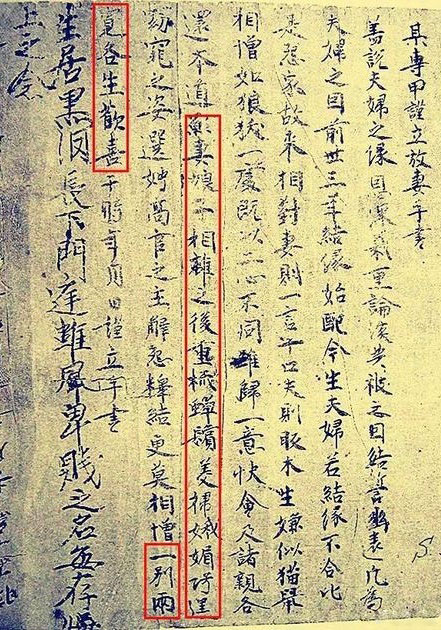 某專甲謹立放妻手書
蓋說夫婦之緣恩深義重論談共被之因結誓幽遠凡為
夫婦之因前世三年結緣始配今生夫婦若結緣不合比
是怨家故來相對妻則一言十口夫則販木生嫌似貓鼠
相憎如狼狨一處既以二心不同難歸一意快會及諸親各
還本道願妻娘子相離之後重梳蟬鬢美掃娥媚巧逞
窈窕之姿選娉高官之主解怨釋結更莫相憎一別兩
寬各生歡喜于時年月日謹立手書
生居黑長下門庭難卑賤之名無存
上之念
S.